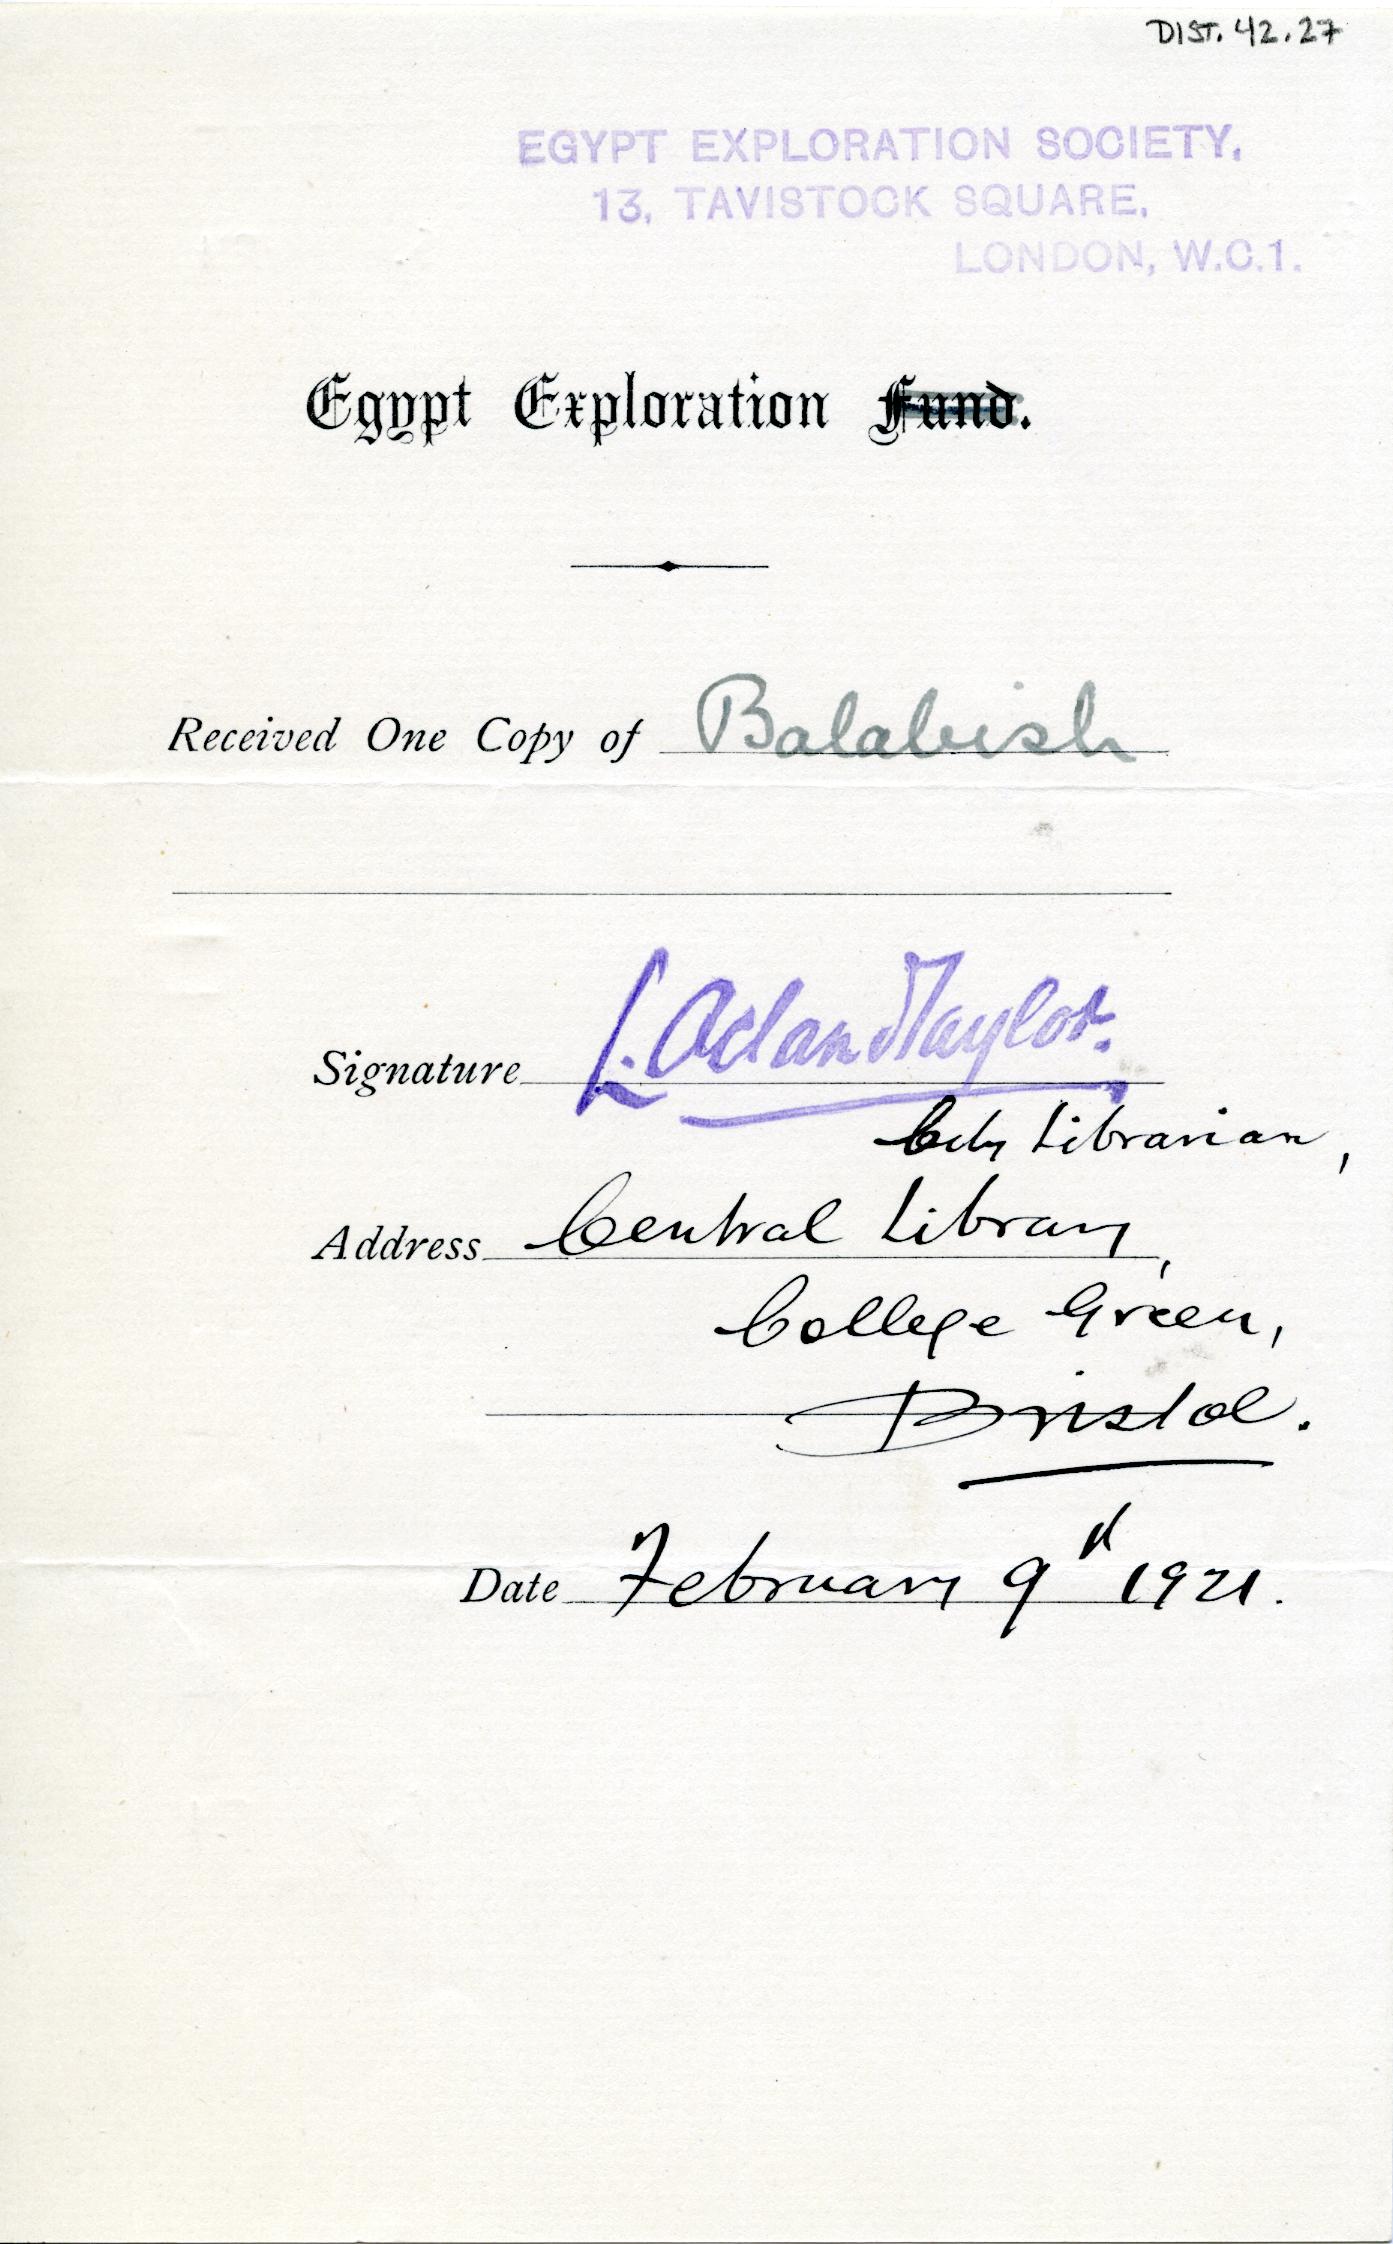 DIST. 42.27
EGYPT EXPLORATION SOCIETY,
13, TAVISTOCK SQUARE,
LONDON, W.C.1.
Egypt Exploration Fund.
Received One Copy of Balabish
Signature L. Acland Taylor.
City Librarian,
Address Central Library,
College Green,
Bristol.
Date February 9th 1921.